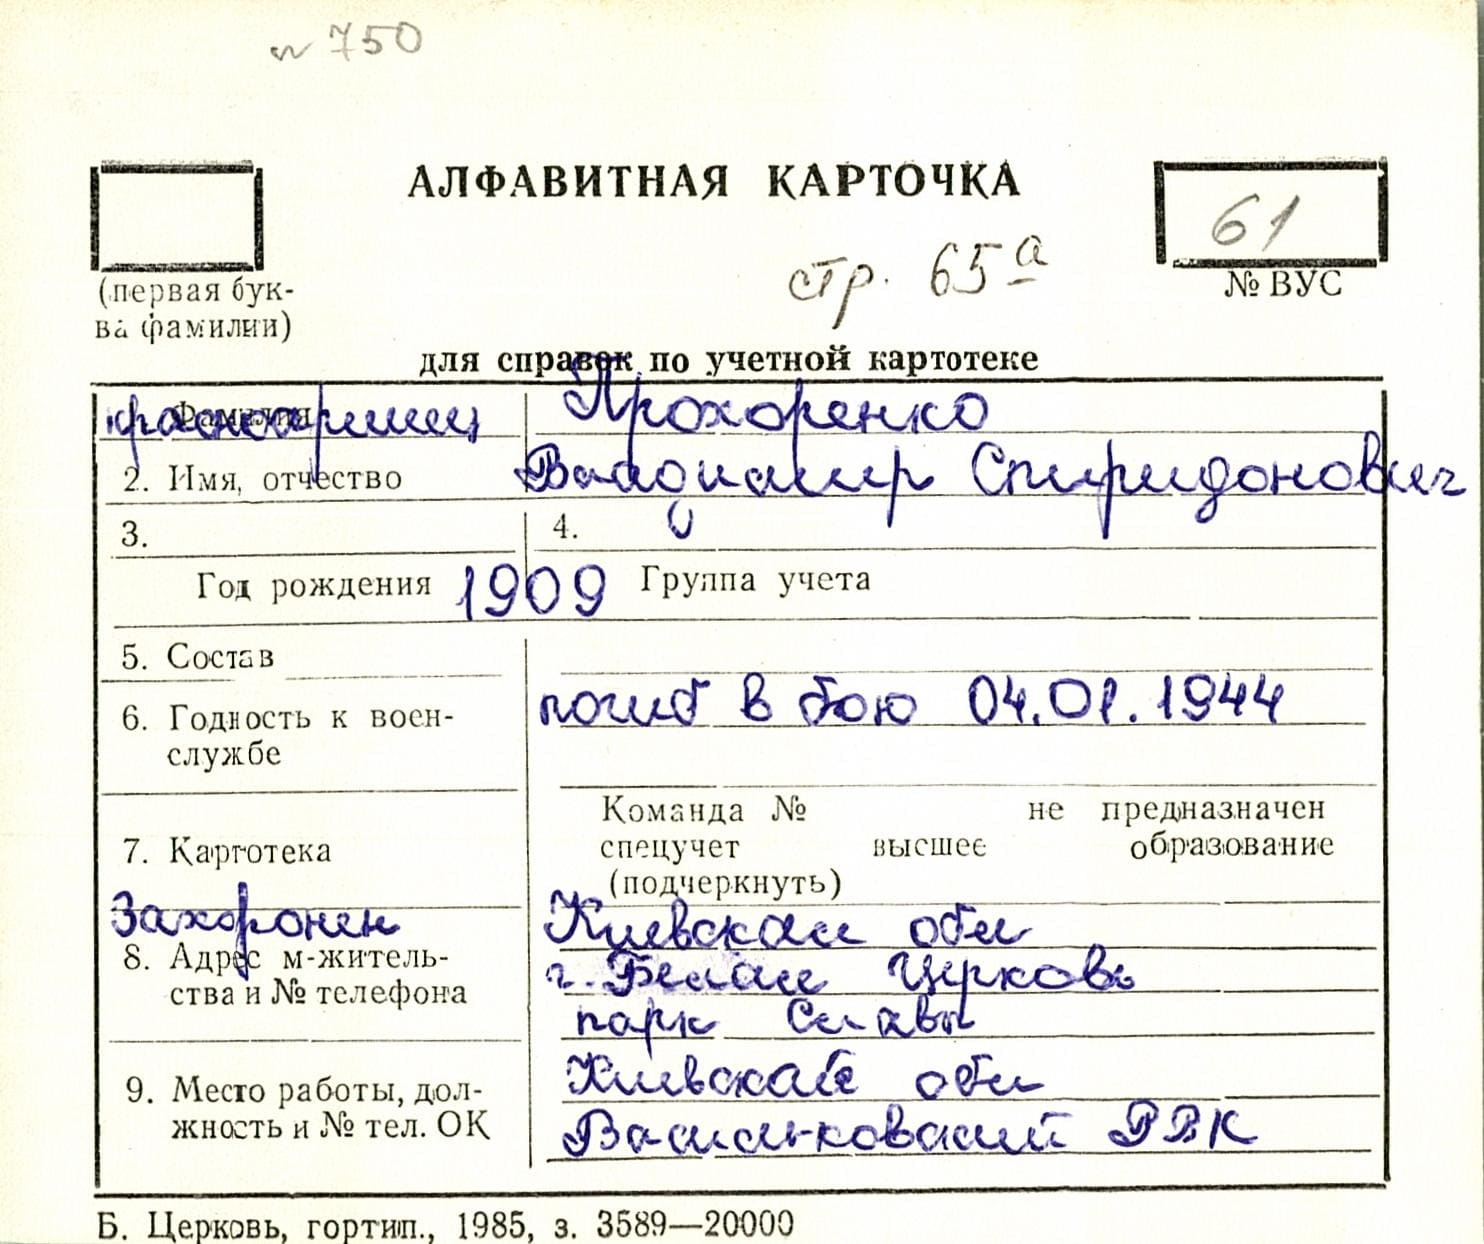 № 750
АЛФАВИТНАЯ КАРТОЧКА
61
(первая бук-
ва фамилии)
стр. 65а
№ ВУС
для справок по учетной картотеке
Фамилия
красноармеец Прохоренко
2. Имя, отчество Владимир Спиридонович
3. 4.
Год рождения 1909 Группа учета
5. Состав
6. Годность к воен-
службе
погиб в бою 04.01.1944
Команда № не предназначен
7. Картотека
спецучет высшее образование
(подчеркнуть)
Захоронен Киевская обл
8. Адрес м-житель-
ства и № телефона
г. Белая Церковь
парк Славы
9. Место работы, дол-
жность и № тел. ОК
Киевская обл
Васильковский РВК
Б. Церковь, гортип., 1985, з. 3589—20000